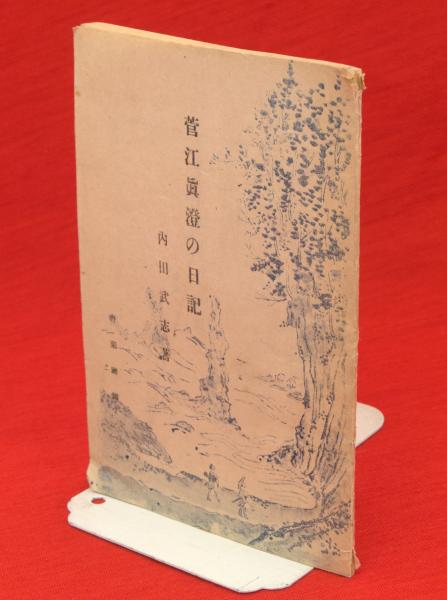 菅江眞澄の日記
內田武志著